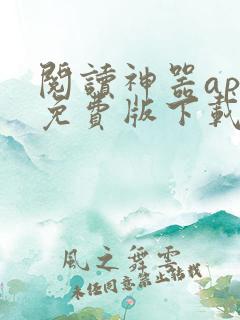 閱讀神器ap
免費版下載
風之舞雲
未經同意禁止轉載